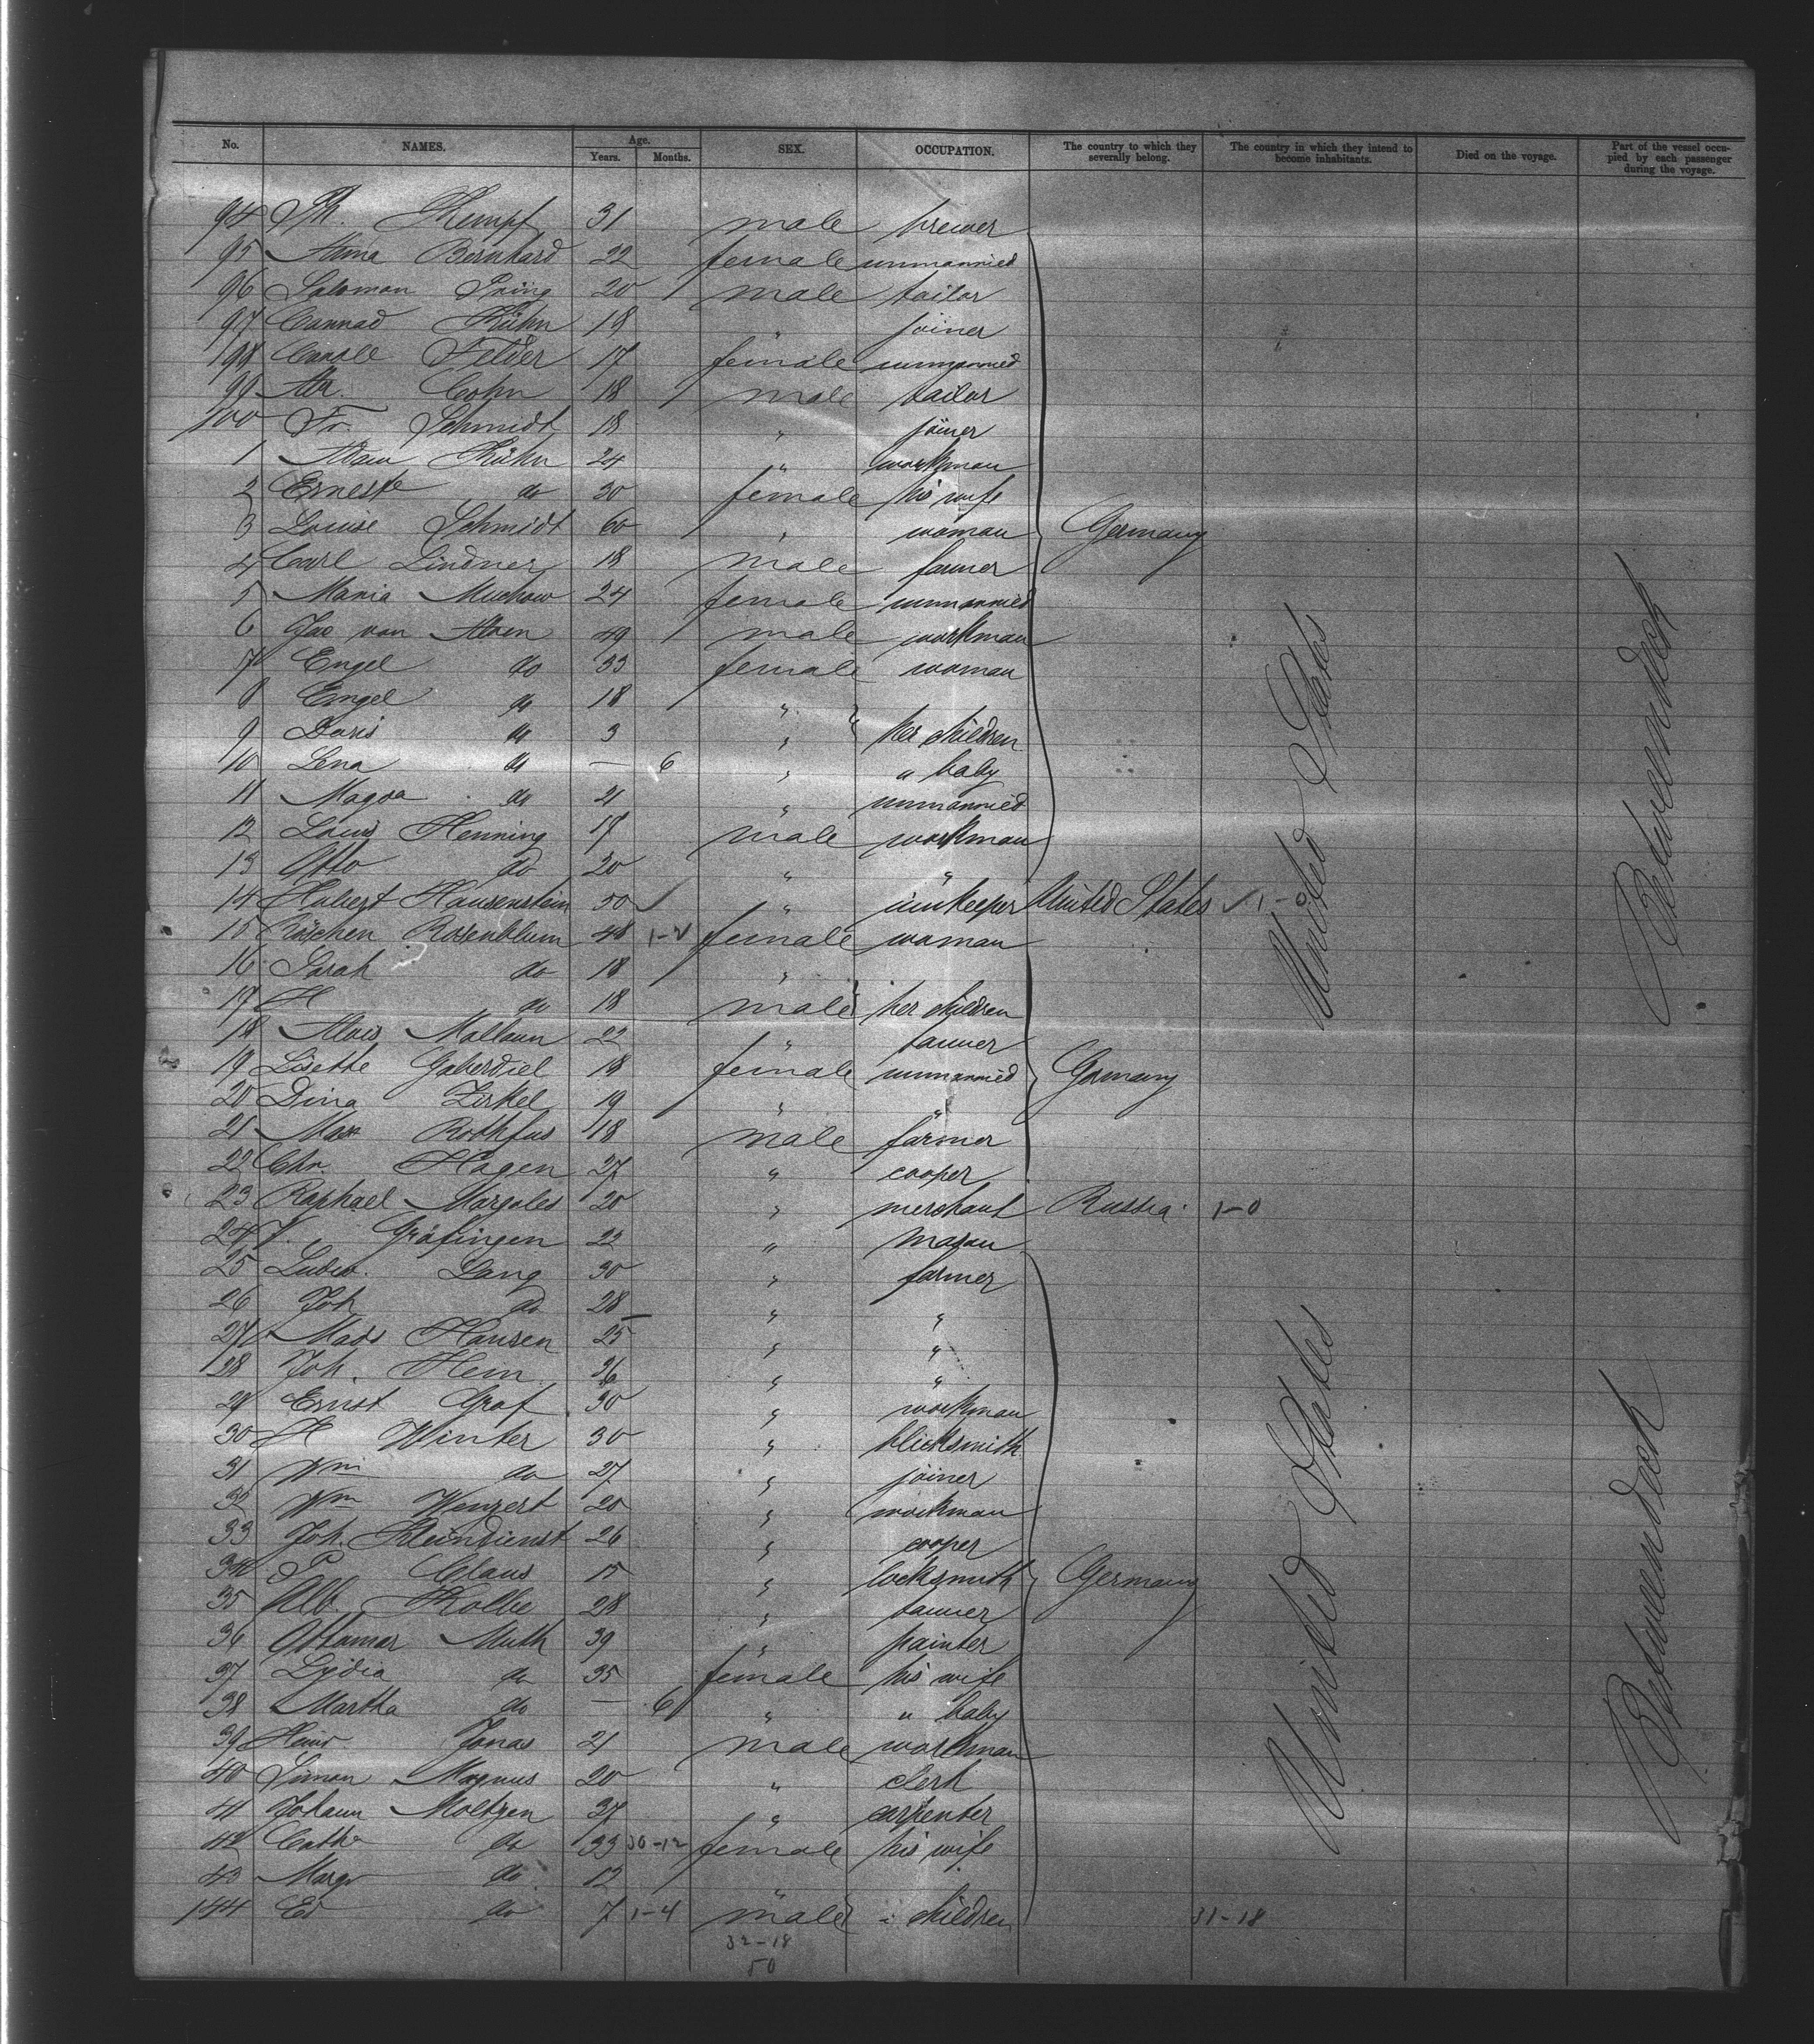 No. NAMES. Age. Years. Months. SEX. OCCUPATION. The country to which they severally belong. The country in which they intend to become inhabitants. Died on the voyage. Part of the vessel occupied by each passenger during the voyage.
94 Ph. Kempf 31 male brewer
95 Anna Bernhard 22 female unmarried
96 Salomon 20 male tailor
97 Conrad Kühn 18 " joiner
198 Felder 17 female unmarried
99 Abr. Cohn 18 male tailor
100 Fr. Schmidt 18 " joiner
1 Adam Kühn 24 " workman
2 Erneste do 30 female his wife
3 Louise Schmidt 60 " woman Germany
4 Carl Lindner 18 male farmer
5 Maria Muchow 24 female unmarried
6 Jac van 49 male workman
7 Engel do 33 female woman
8 Engel do 18 "
9 Doris do 3 " her children
10 Lena do — 6 " " baby
11 Magda do 21 " unmarried
12 Louis Henning 17 male workman
13 Otto do 20 " "
14 Hubert Hausenstein 50 " innkeeper United States 1-0
15 Röschen Rosenblum 48 1-2 female woman
16 Sarah do 18 "
17 H do 18 male her children
18 Alois 22 " tanner
19 Lisette Gaberdiel 18 female unmarried Germany
20 Dina Zirkel 19 " "
21 Max Rothfus 18 male farmer
22 Chr. Hagen 27 " cooper
23 Raphael Margoles 20 " merchant Russia 1-0
24 V. Gräfingen 22 " mason
25 Ludw. Lang 30 " farmer
26 Joh do 28 " "
27 Mads Hansen 25 " "
28 Joh. Hein 36 " "
29 Ernst Graf 30 " workman
30 H Winter 30 " blicksmith
31 Wm do 27 " joiner
32 Wm Wenzert 20 " workman
33 Joh. Kleindienst 26 " cooper
34 P Claus 15 " locksmith Germany
35 Alb Kolbe 28 " tanner
36 Ottomar Muth 39 " painter
37 Lydia do 35 female his wife
38 Martha do — 6 " " baby
39 Heinr Jonas 21 male workman
40 Simon Magnus 20 " clerk
41 Johann Moltzen 37 " carpenter
42 Cathr do 33 30-12 female his wife
43 Margr do 12 "
144 Ed do 7 1-4 male " children 31-18
32-18
50
United States
Betweendeck
United States
Betweendeck